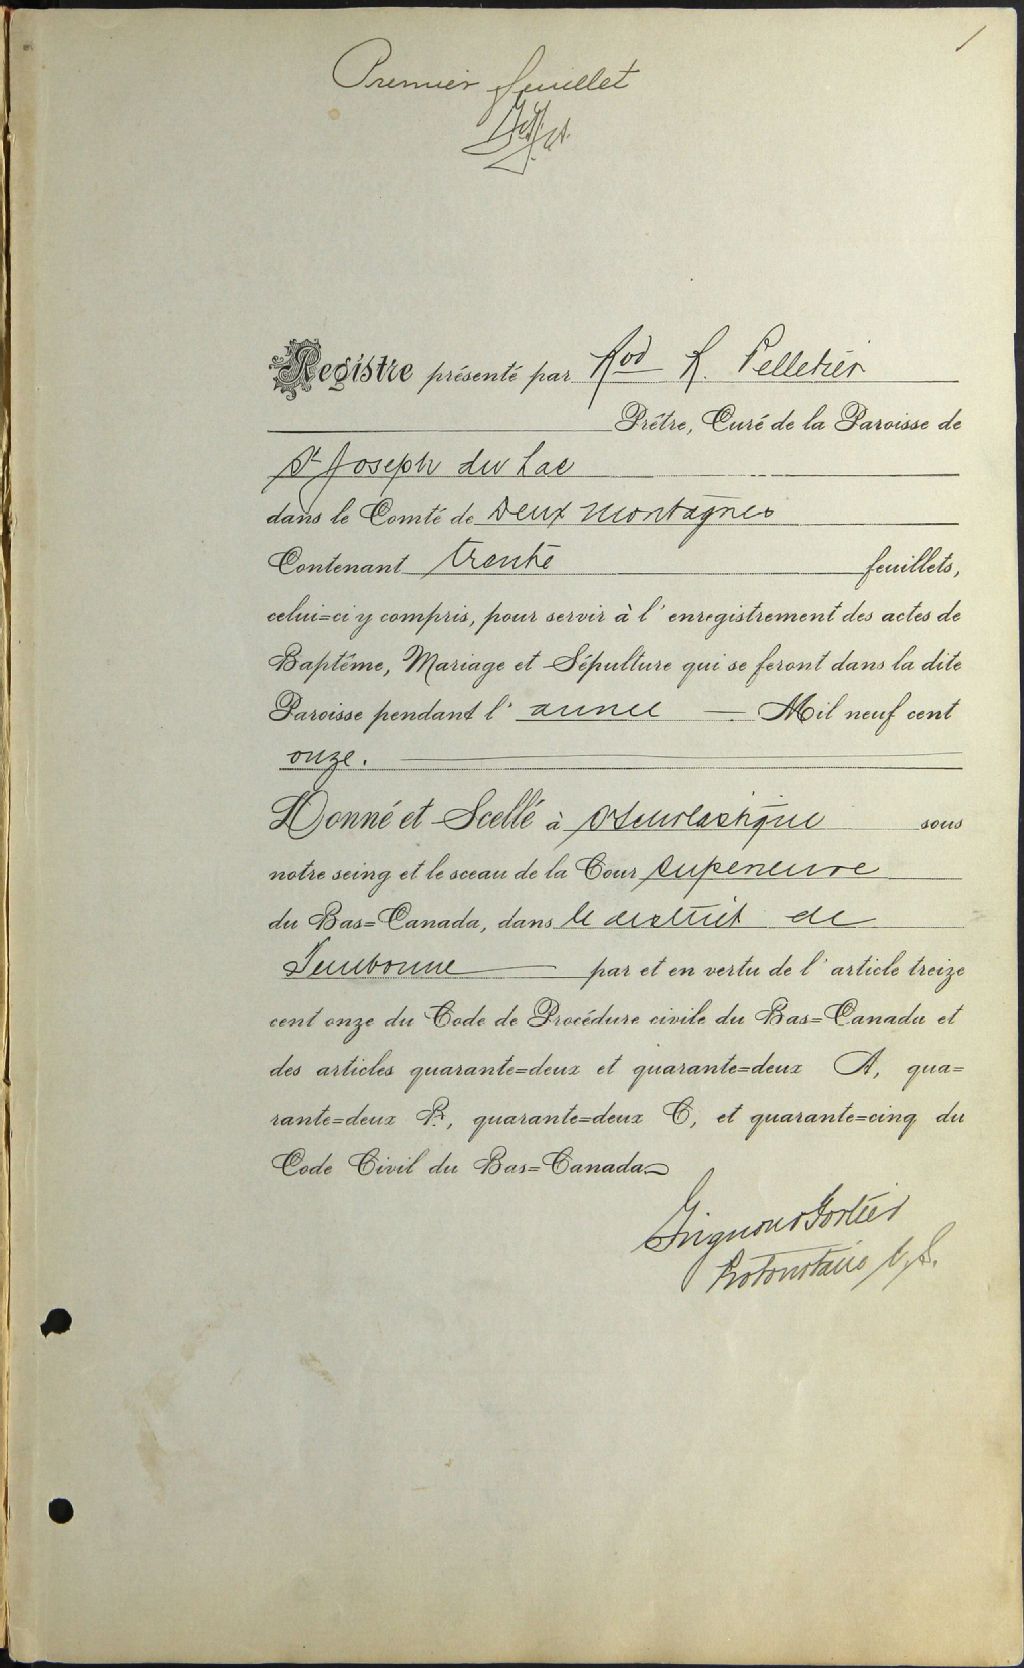 1
Premier feuillet
Registre présenté par Rvd R. Pelletier
Prêtre, Curé de la Paroisse de
St Joseph du Lac
dans le Comté de Deux Montagnes
Contenant trente feuillets,
celui=ci y compris, pour servir à l'enregistrement des actes de
Baptême, Mariage et Sépulture qui se feront dans la dite
Paroisse pendant l'année — Mil neuf cent
onze.
Donné et Scellé à Ste Scholastique sous
notre seing et le sceau de la Cour Supérieure
du Bas=Canada, dans le district de
Terrebonne — par et en vertu de l'article treize
cent onze du Code de Procédure civile du Bas=Canada et
des articles quarante=deux et quarante=deux A, qua=
rante=deux B, quarante=deux C, et quarante=cinq du
Code Civil du Bas=Canada
Grignon & Fortier
Protonotaire C. S.